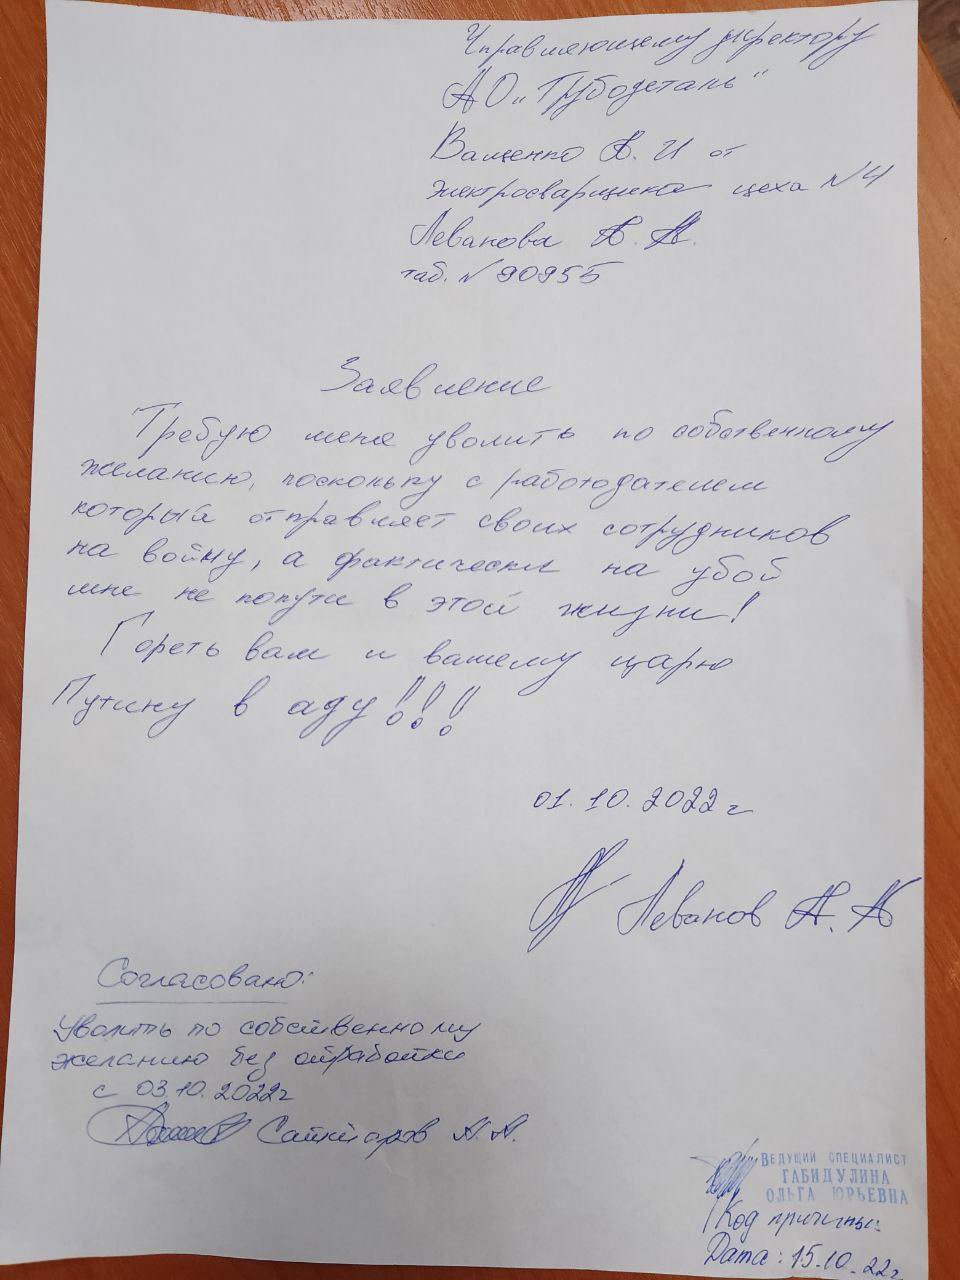 Управляющему директору
АО „Трубодеталь"
Ващенко А. И от
электросварщика цеха №4
Леванова А. А.
таб. № 90955
Заявление
Требую меня уволить по собственному
желанию, поскольку с работодателем
который отправляет своих сотрудников
на войну, а фактически на убой
мне не попути в этой жизни!
Гореть вам и вашему царю
Путину в аду!!!
01.10.2022г
Леванов А. А
Согласовано:
Уволить по собственному
желанию без отработки
с 03.10.2022г
Саткаров А.А.
ВЕДУЩИЙ СПЕЦИАЛИСТ
ГАБИДУЛИНА
ОЛЬГА ЮРЬЕВНА
Код причины:
Дата: 15.10.22г